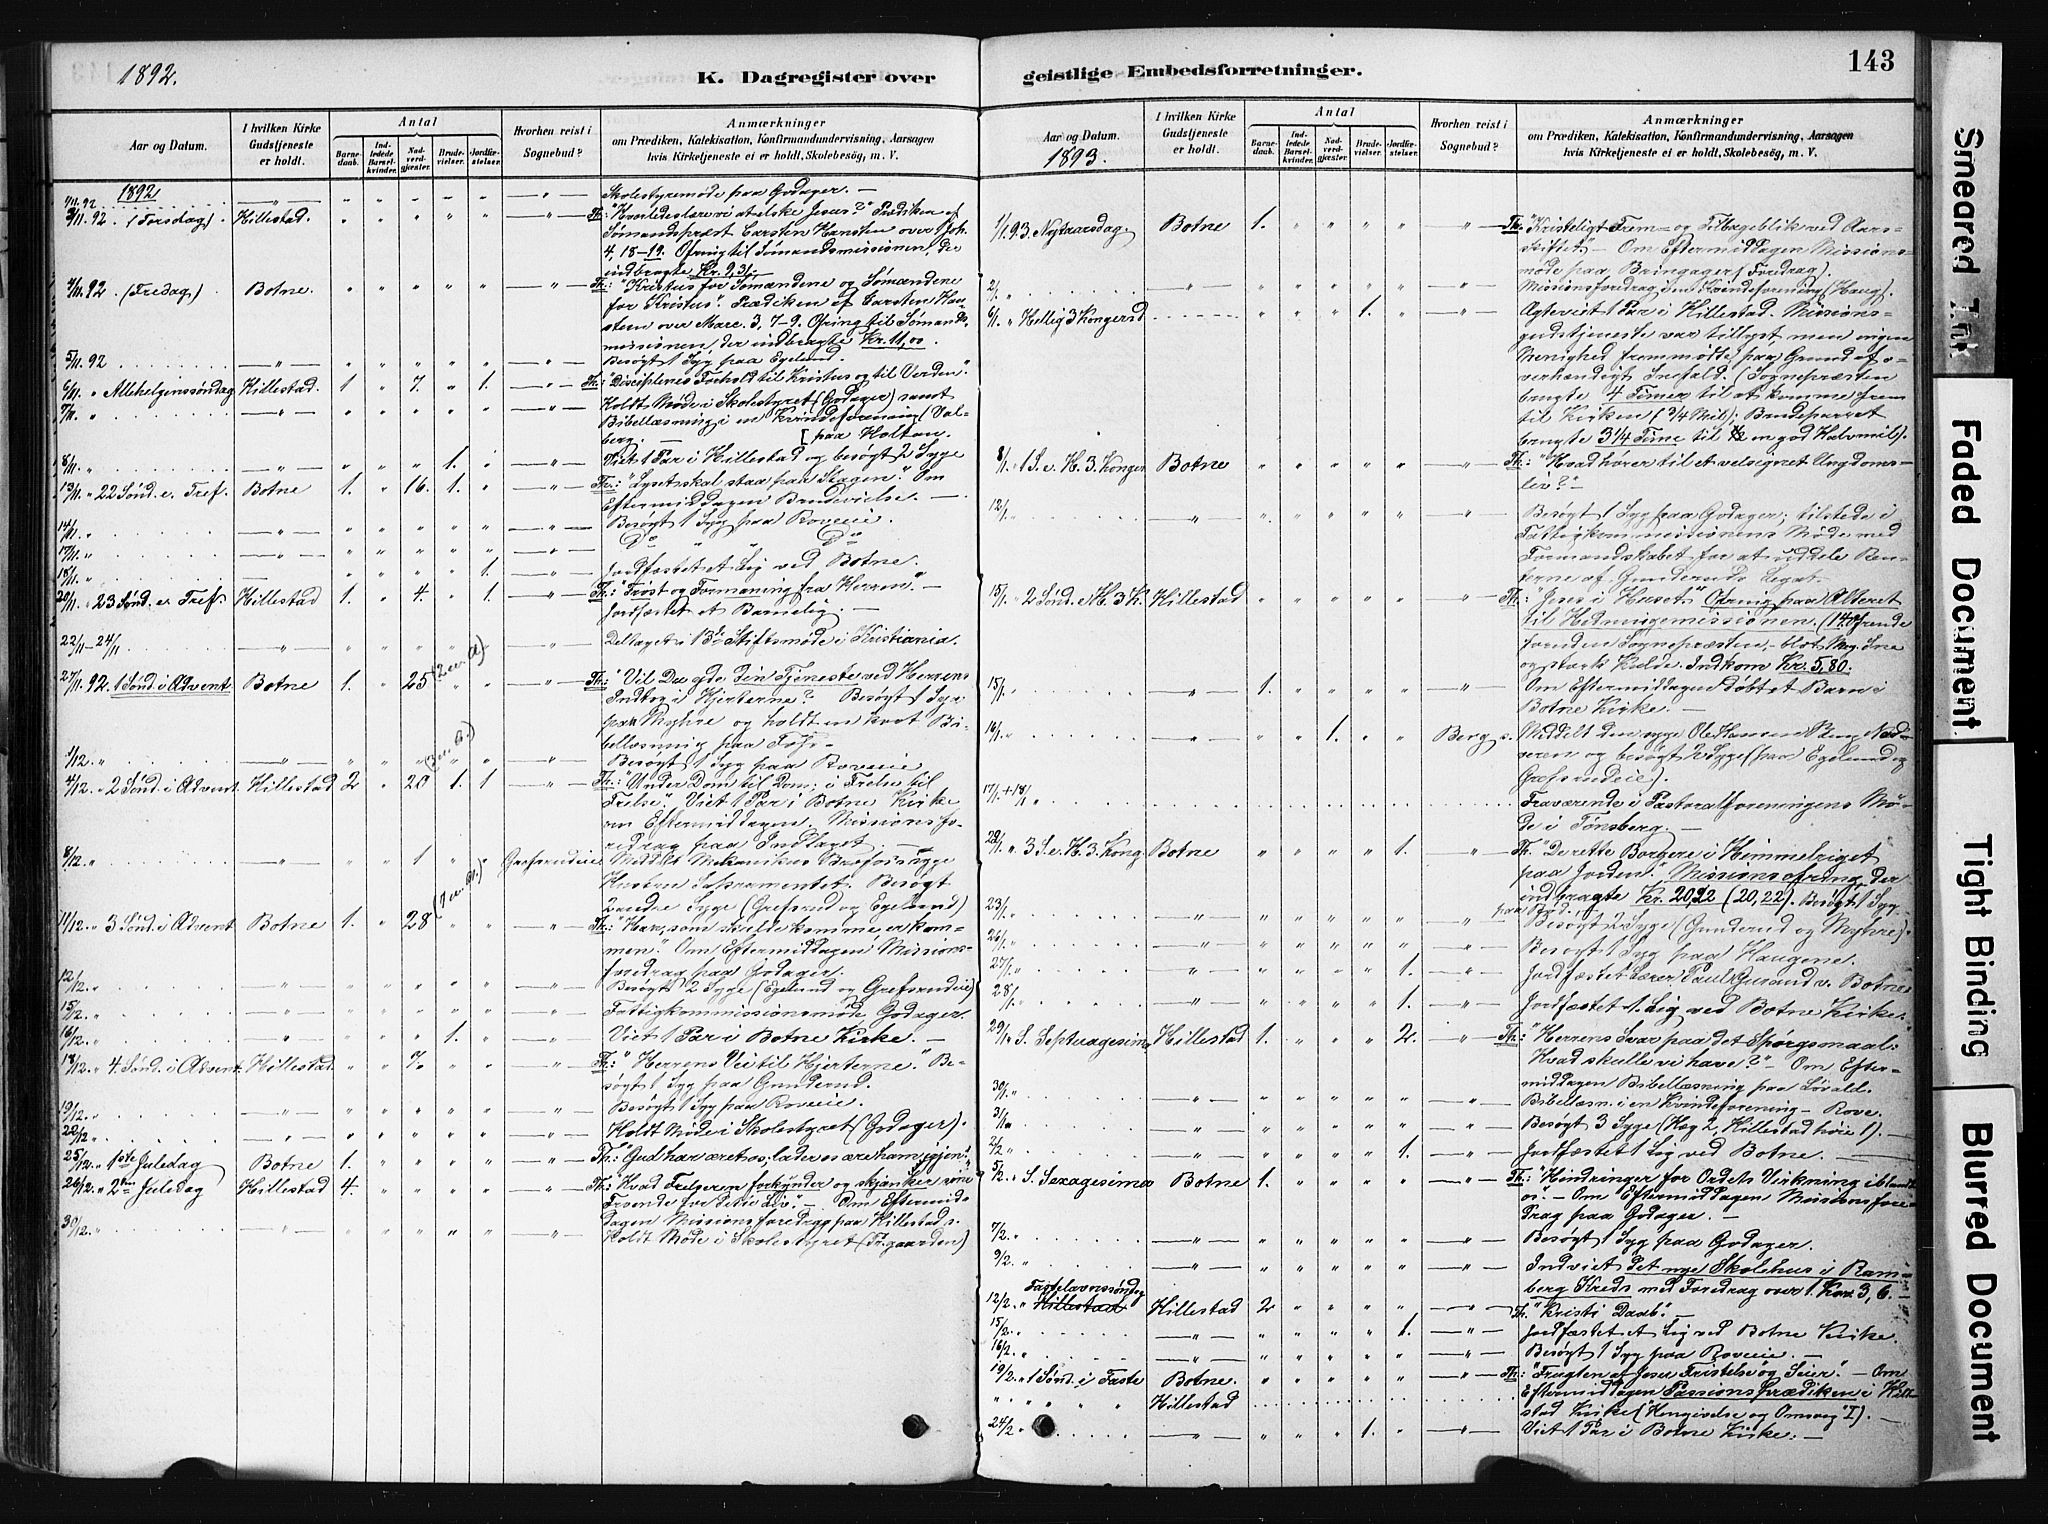 1892.
K. Dagregister over
geistlige Embedsforretninger.
143
Aar og Datum.
I hvilken Kirke Gudstjeneste er holdt.
Antal
Barnedaab.
Indledede Barselkvinder.
Nadverdgjester.
Brudevielser.
Jordfæstelser.
Hvorhen reist i Sognebud?
Anmærkninger
om Prædiken, Katekisation, Konfirmandundervisning, Aarsagen
hvis Kirketjeneste ei er holdt, Skolebesög, m. V.
1892
Skolestyremøde paa Godager. —
3/11. 92. (Torsdag) Hillestad. Th: "Hvorledes lære vi at elske Jesus?" Prædiken af
Sømandspræst Carsten Hansteen over Joh.
4, 18-19. Ofring til Sømandsmissionen, der
indbragte Kr. 9,31.
4/11. 92 (Fredag) Botne. Th: "Kristus for Sømændene og Sømændene
for Kristus". Prædiken af Carsten Han-
steen over Marc. 3, 7-9. Ofring til Sømands-
missionen, der indbragte Kr. 11,00.
5/11. 92 Besøgt 1 Syg paa Egelund.
6/11. " Allehelgenssøndag Hillestad. 1 7. 1. Th: "Disciplenes Forhold til Kristus og til Verden."
7/11. " Holdt Møde i Skolestyret (Godager) samt
Bibellæsning i en Kvindeforening (Sol-
berg. — [paa Holtan.
8/11. " 1. Viet 1 Par i Hillestad og besøgt 2 Syge
13/11. " 22 Sønd. e. Tref. Botne 1. 16. 1. Th: "Lyset skal staa paa Stagen." Om
Eftermiddagen Brudevielse. —
14/11. " Besøgt 1 Syg paa Roveie.
17/11. " Do " Do
18/11. " 1. Jordfæstet et Lig ved Botne.
20/11. " 23 Sønd. e. Tref. Hillestad 1. 4 1. Th: "Trøst og Formaning fra Herren" —
Jordfæstet et Barnelig. —
22/11 - 24/11 Deltaget i Stiftsmøde i Kristiania.
27/11. 92. 1 Sønd. i Advent Botne 1. 25 Th: "Vil Du gde Din Tjeneste ved Herrens
Indtog i Hjerterne? Besøgt 1 Syg
paa Myhre og holdt en kort Bi-
bellæsning paa
1/12. " Besøgt 1 Syg paa Roveie
4/12. " 2 Sønd. i Advent Hillestad 2 20 1. 1 Th: "Under Dom til Dom; i Frelse til
Frelse". Viet 1 Par i Botne Kirke
om Eftermiddagen. Missionsfo-
redrag paa Indlaget. —
8/12. " 1 Grefsrudeie Meddelt Mekanikus syge
Hustru Sakramentet. Besøgt
2 andre Syge (Grefsrud og Egelund)
11/12. " 3 Sønd. i Advent Botne 1. 28 Th: "Han, som skulde komme, er kom-
men". Om Eftermiddagen Missions-
foredrag paa Godager.
12/12. " Besøgt 2 Syge (Egelund og Grefsrudeie)
15/12. " Fattigkommissionsmøde Godager.
16/12. " 1. Viet 1 Par i Botne Kirke. —
18/12. " 4. Sønd. i Advent Hillestad Th: "Herrens Vei til Hjerterne." Be-
søgt 1 Syg paa Gunderud.
19/12. " Besøgt 1 Syg paa Roveie.
22/12 " Holdt Møde i Skolestyret (Godager).
25/12. " 1ste Juledag Botne 1. Th: "Gud har æret os; lader os ære ham igjen".
26/12. " 2den Juledag Hillestad 4. Th: "Hvad Frelseren forkynder og skjænker sine
Troende for dette Liv". — Om Eftermid-
dagen Missionsforedrag paa Hillestad s.
30/12. " Holdt Møde i Skolestyret
Aar og Datum.
1893.
I hvilken Kirke Gudstjeneste er holdt.
Antal
Barnedaab.
Indledede Barselkvinder.
Nadverdgjester.
Brudevielser.
Jordfæstelser.
Hvorhen reist i Sognebud?
Anmærkninger
om Prædiken, Katekisation, Konfirmandundervisning, Aarsagen
hvis Kirketjeneste ei er holdt, Skolebesög, m. V.
1/1. 93. Nytaarsdag. Botne 1. Th: "Kristeligt Frem- og Tilbageblik ved Aars-
skiftet" — Om Eftermiddagen Missions-
møde paa Bringager (Foredrag).
2/1. " Missionsforedrag i en Kvindeforening (Haug).
6/1. " Hellig 3 Kongersd 1. Agteviet 1 Par i Hillestad. Missions-
gudstjeneste var tillyst men ingen
Menighed fremmødte paa Grund af o-
verhændigt Snefald. (Sognepræsten
brugte 4 Timer til at komme frem
til Kirken (3/4 Mil); Brudeparret
brugte 3 1/4 Time til en god Halvmil).
8/1. " 1 S. e. H. 3 Konger Botne Th: "Hvad hører til et velsignet Ungdoms-
lev?" —
12/1. " Besøgt 1 Syg paa Godager; tilstede i
Fattigkommissionens Møde med
Formandskabet for at uddele Ren-
terne af Gunderuds Legat.
15/1. " 2 Sønd. e. H. 3 K. Hillestad Th: "Jesus i Huset." Ofring paa Alteret
til Hedningemissionen. (14 Ofrende
foruden Sognepræsten, — blot Meg. Sne
og stærk Kulde. Indkom Kr. 5,80.
15/1. " 1. Om Eftermiddagen døbt et Barn i
Botne Kirke. —
16/1. " 1. Berg s. Meddelt den syge Ole Hansen Berg Nad-
veren og besøgt 2 Syge (paa Egelund og
Grefsrudeie).
17/1. + 18/1 " Fraværende i Pastoralforeningens Mø-
de i Tønsberg. —
22/1. " 3 S. e. H. 3 Kong. Botne 1. Th. "De rette Borgere i Himmelriget
paa Jorden." Missionsofring, der
indbragte Kr. 20,22 (20,22). Besøgt 1 Syg
23/1. " Besøgt 2 Syge (Gunderud og Myhre).
26/1. " Besøgt 1 Syg paa Haugene.
27/1. " 1. Jordfæstet Lærer Paul v. Botne.
28/1. " 1. Jordfæstet 1 Lig ved Botne Kirke.
29/1. " S. Septuagesima Hillestad 1. 2. Th: "Herrens Svar paa det Spørgsmaal:
Hvad skulle vi have?" — Om Efter-
middagen Bibellæsning paa Løvald.
30/1. " Bibellæsn. i en Kvindeforening — Rove.
31/1. " Besøgt 3 Syge (Hæg 2, Hillestad høie 1). —
2/2 " 1. Jordfæstet 1 Lig ved Botne. —
5/2. " S. Sexagesima Botne 1. Th: "Hindringer for Ordets Virkning iblandt
os". — Om Eftermiddagen Missionsfore-
drag paa Godager. —
7/2. " Besøgt 1 Syg paa Godager.
9/2. " Indviet det nye Skolehus i Ram-
berg Kreds med Foredrag over 1. Kor. 3, 6. —
Fastelavnssøndag
12/2. " Hillestad Hillestad 2 Th. "Kristi Daab". —
15/2. " 1. Jordfæstet et Lig ved Botne Kirke.
16/2. " Besøgt 1 Syg paa Roveie. —
19/2. " 1 Sønd. i Faste Botne. Th: "Frugten af Jesu Fristelse og Seier". — Om
Eftermiddagen Passionsprædiken i Hille-
" " " " " Hillestad stad Kirke ("Hengivelse og Omsorg" I). —
24/2 " 1. Viet 1 Par i Botne Kirke. —
Smeared Ink
Faded Document
Tight Binding
Blurred Document